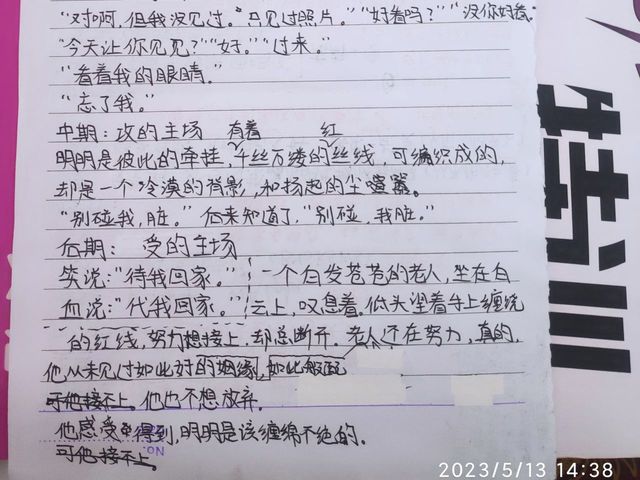 “对啊,但我没见过。”“只见过照片。”“好看吗?”“没你好看。”
“今天让你见见?”“好。”“过来。”
“看着我的眼睛。”
“忘了我。”
中期:攻的主场 有着 红
明明是彼此的牵挂,千丝万缕的丝线,可编织成的,
却是一个冷漠的背影,和扬起的尘喧嚣。
“别碰我,脏。”后来知道了,“别碰,我脏。”
后期: 受的主场
笑说:“待我回家。” 一个白发苍苍的老人,坐在白
血说:“代我回家。” 云上,叹息着。低头望着手上缠绕
的红线,努力想接上,却总断开。老人还在努力,真的,
他从未见过如此好的姻缘,如此
可他接不上。他也不想放弃。
他感受得到,明明是该缠绵不绝的。
可他接不上。
NO.
2023/5/13 14:38